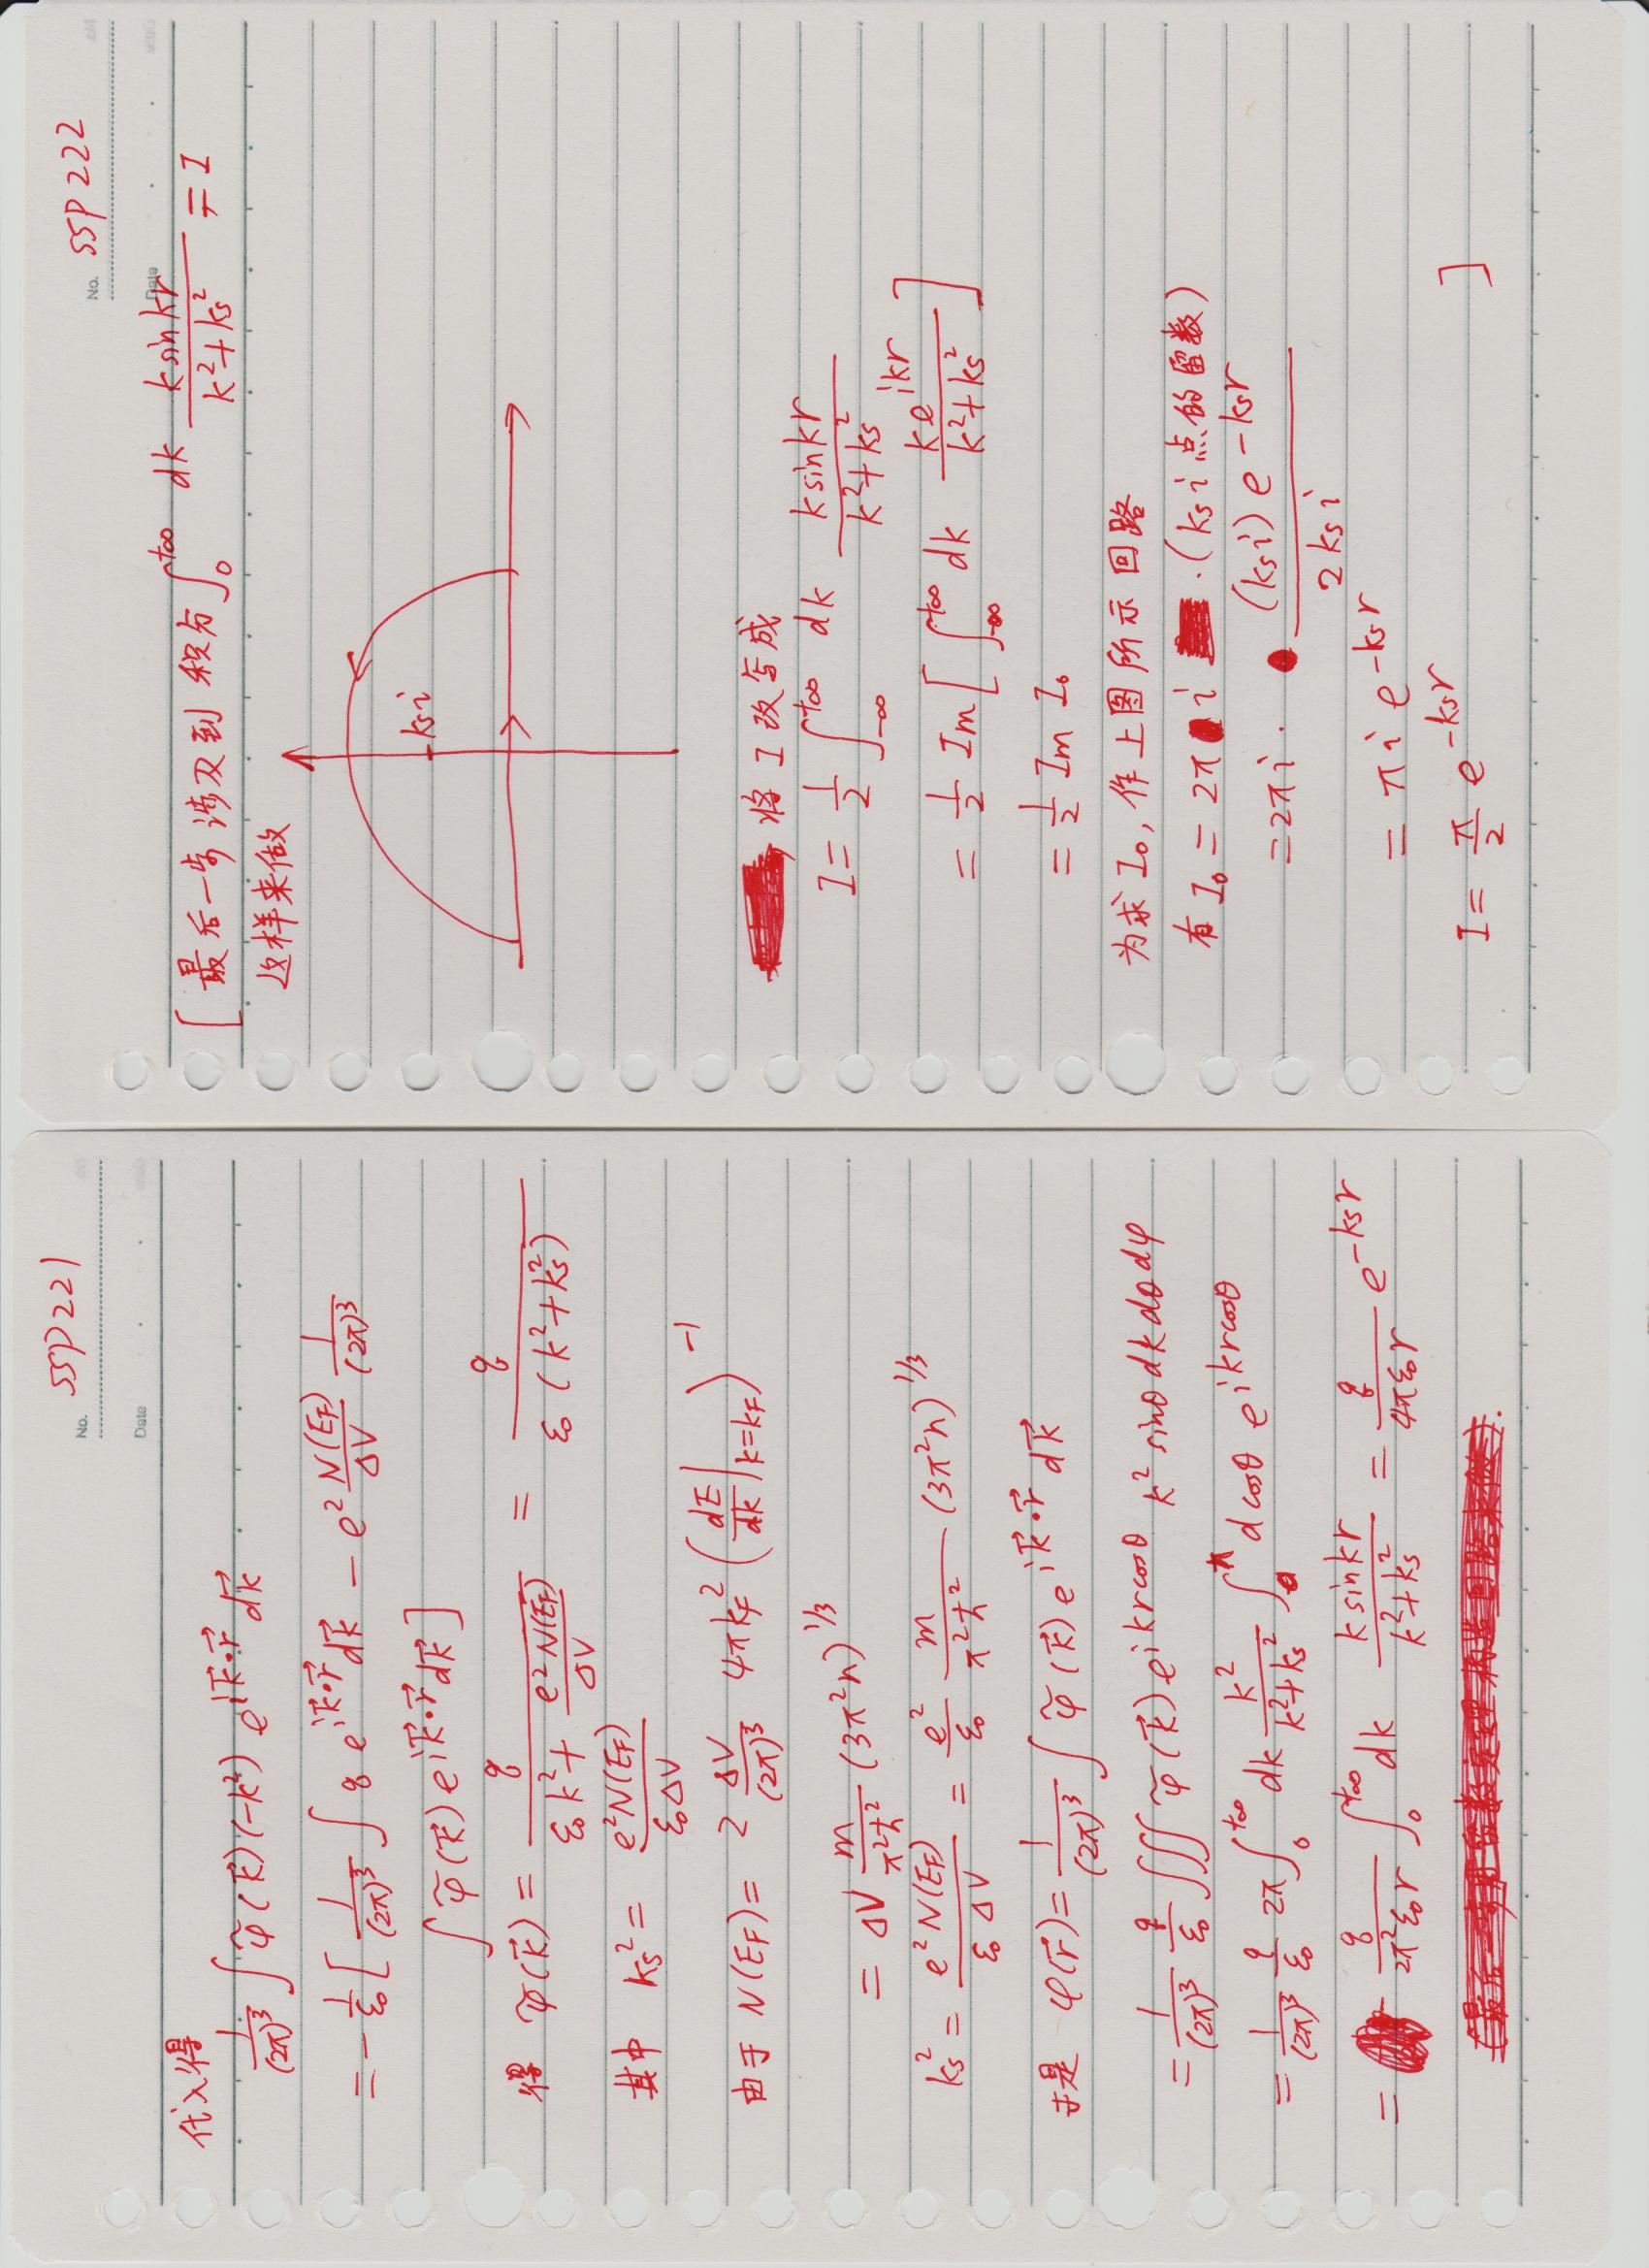 No. SSP221
Date
代入得
1/(2π)³ ∫ φ̃(k⃗)(-k²) e^{ik⃗·r⃗} dk⃗
= -1/ε₀ [ 1/(2π)³ ∫ q e^{ik⃗·r⃗} dk⃗ - e² N(E_F)/ΔV 1/(2π)³
∫ φ̃(k⃗) e^{ik⃗·r⃗} dk⃗ ]
得 φ̃(k⃗) = q/(ε₀k² + e²N(E_F)/ΔV) = q/(ε₀(k²+k_s²))
其中 k_s² = e²N(E_F)/(ε₀ΔV)
由于 N(E_F) = 2 ΔV/(2π)³ 4πk_F² (dE/dk|_{k=k_F})^{-1}
= ΔV m/(π²ħ²) (3π²n)^{1/3}
k_s² = e²N(E_F)/(ε₀ΔV) = e²/ε₀ m/(π²ħ²) (3π²n)^{1/3}
于是 φ(r⃗) = 1/(2π)³ ∫ φ̃(k⃗) e^{ik⃗·r⃗} dk⃗
= 1/(2π)³ q/ε₀ ∭ φ̃(k⃗) e^{ikrcosθ} k² sinθ dk dθ dφ
= 1/(2π)³ q/ε₀ 2π ∫₀^{+∞} dk k²/(k²+k_s²) ∫₀^π dcosθ e^{ikrcosθ}
= q/(2π²ε₀r) ∫₀^{+∞} dk ksinkr/(k²+k_s²) = q/(4πε₀r) e^{-k_s r}
(最后一步用留数定理构造回路来做).
No. SSP222
Date
[ 最后一步涉及到积分 ∫₀^{+∞} dk ksinkr/(k²+k_s²) = I
这样来做
k_s i
, 将 I 改写成
I = 1/2 ∫_{-∞}^{+∞} dk ksinkr/(k²+k_s²)
= 1/2 Im [ ∫_{-∞}^{+∞} dk ke^{ikr}/(k²+k_s²) ]
= 1/2 Im I₀
为求 I₀, 作上图所示回路
有 I₀ = 2π i ·(k_s i 点的留数)
= 2πi · (k_s i)e^{-k_s r}/(2k_s i)
= πi e^{-k_s r}
I = π/2 e^{-k_s r} ]